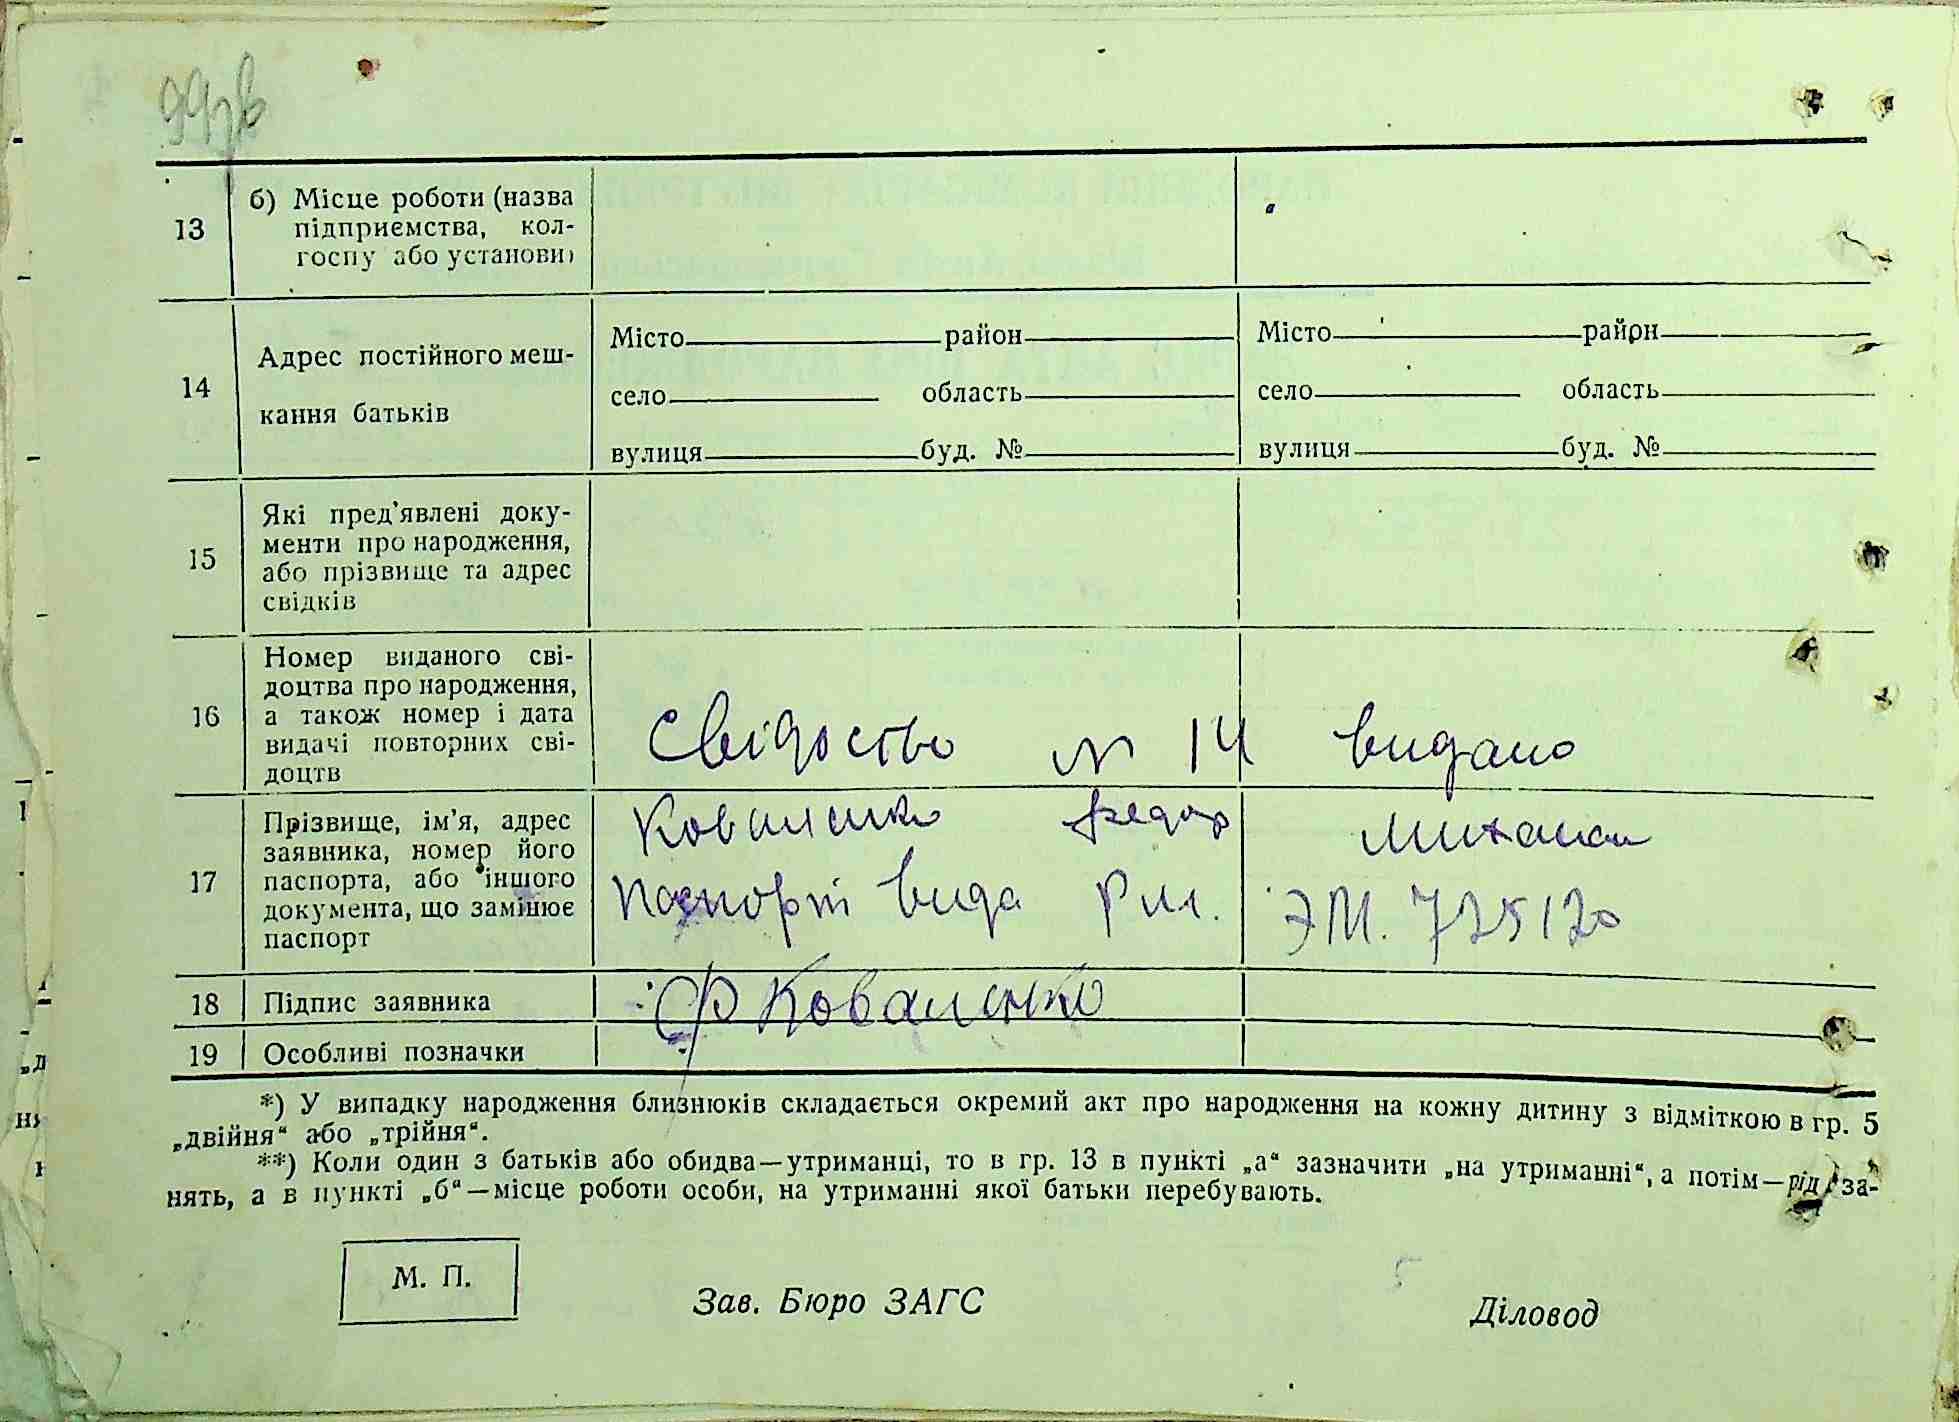 99зв
13 б) Місце роботи (назва
підприємства, кол-
госпу або установи)
14 Адрес постійного меш-
кання батьків
Місто район Місто район
село область село область
вулиця буд. № вулиця буд. №
15 Які пред'явлені доку-
менти про народження,
або прізвище та адрес
свідків
16 Номер виданого сві-
доцтва про народження,
а також номер і дата
видачі повторних сві-
доцтв
Свідоство № 14 видано
17 Прізвище, ім'я, адрес
заявника, номер його
паспорта, або іншого
документа, що замінює
паспорт
Коваленко Федор
Паспорт вида ЭМ. 725120
18 Підпис заявника Ф Коваленко
19 Особливі позначки
*) У випадку народження близнюків складається окремий акт про народження на кожну дитину з відміткою в гр. 5
„двійня“ або „трійня“.
**) Коли один з батьків або обидва—утриманці, то в гр. 13 в пункті „а“ зазначити „на утриманні“, а потім—рід за-
нять, а в пункті „б“—місце роботи особи, на утриманні якої батьки перебувають.
М. П.
Зав. Бюро ЗАГС Діловод